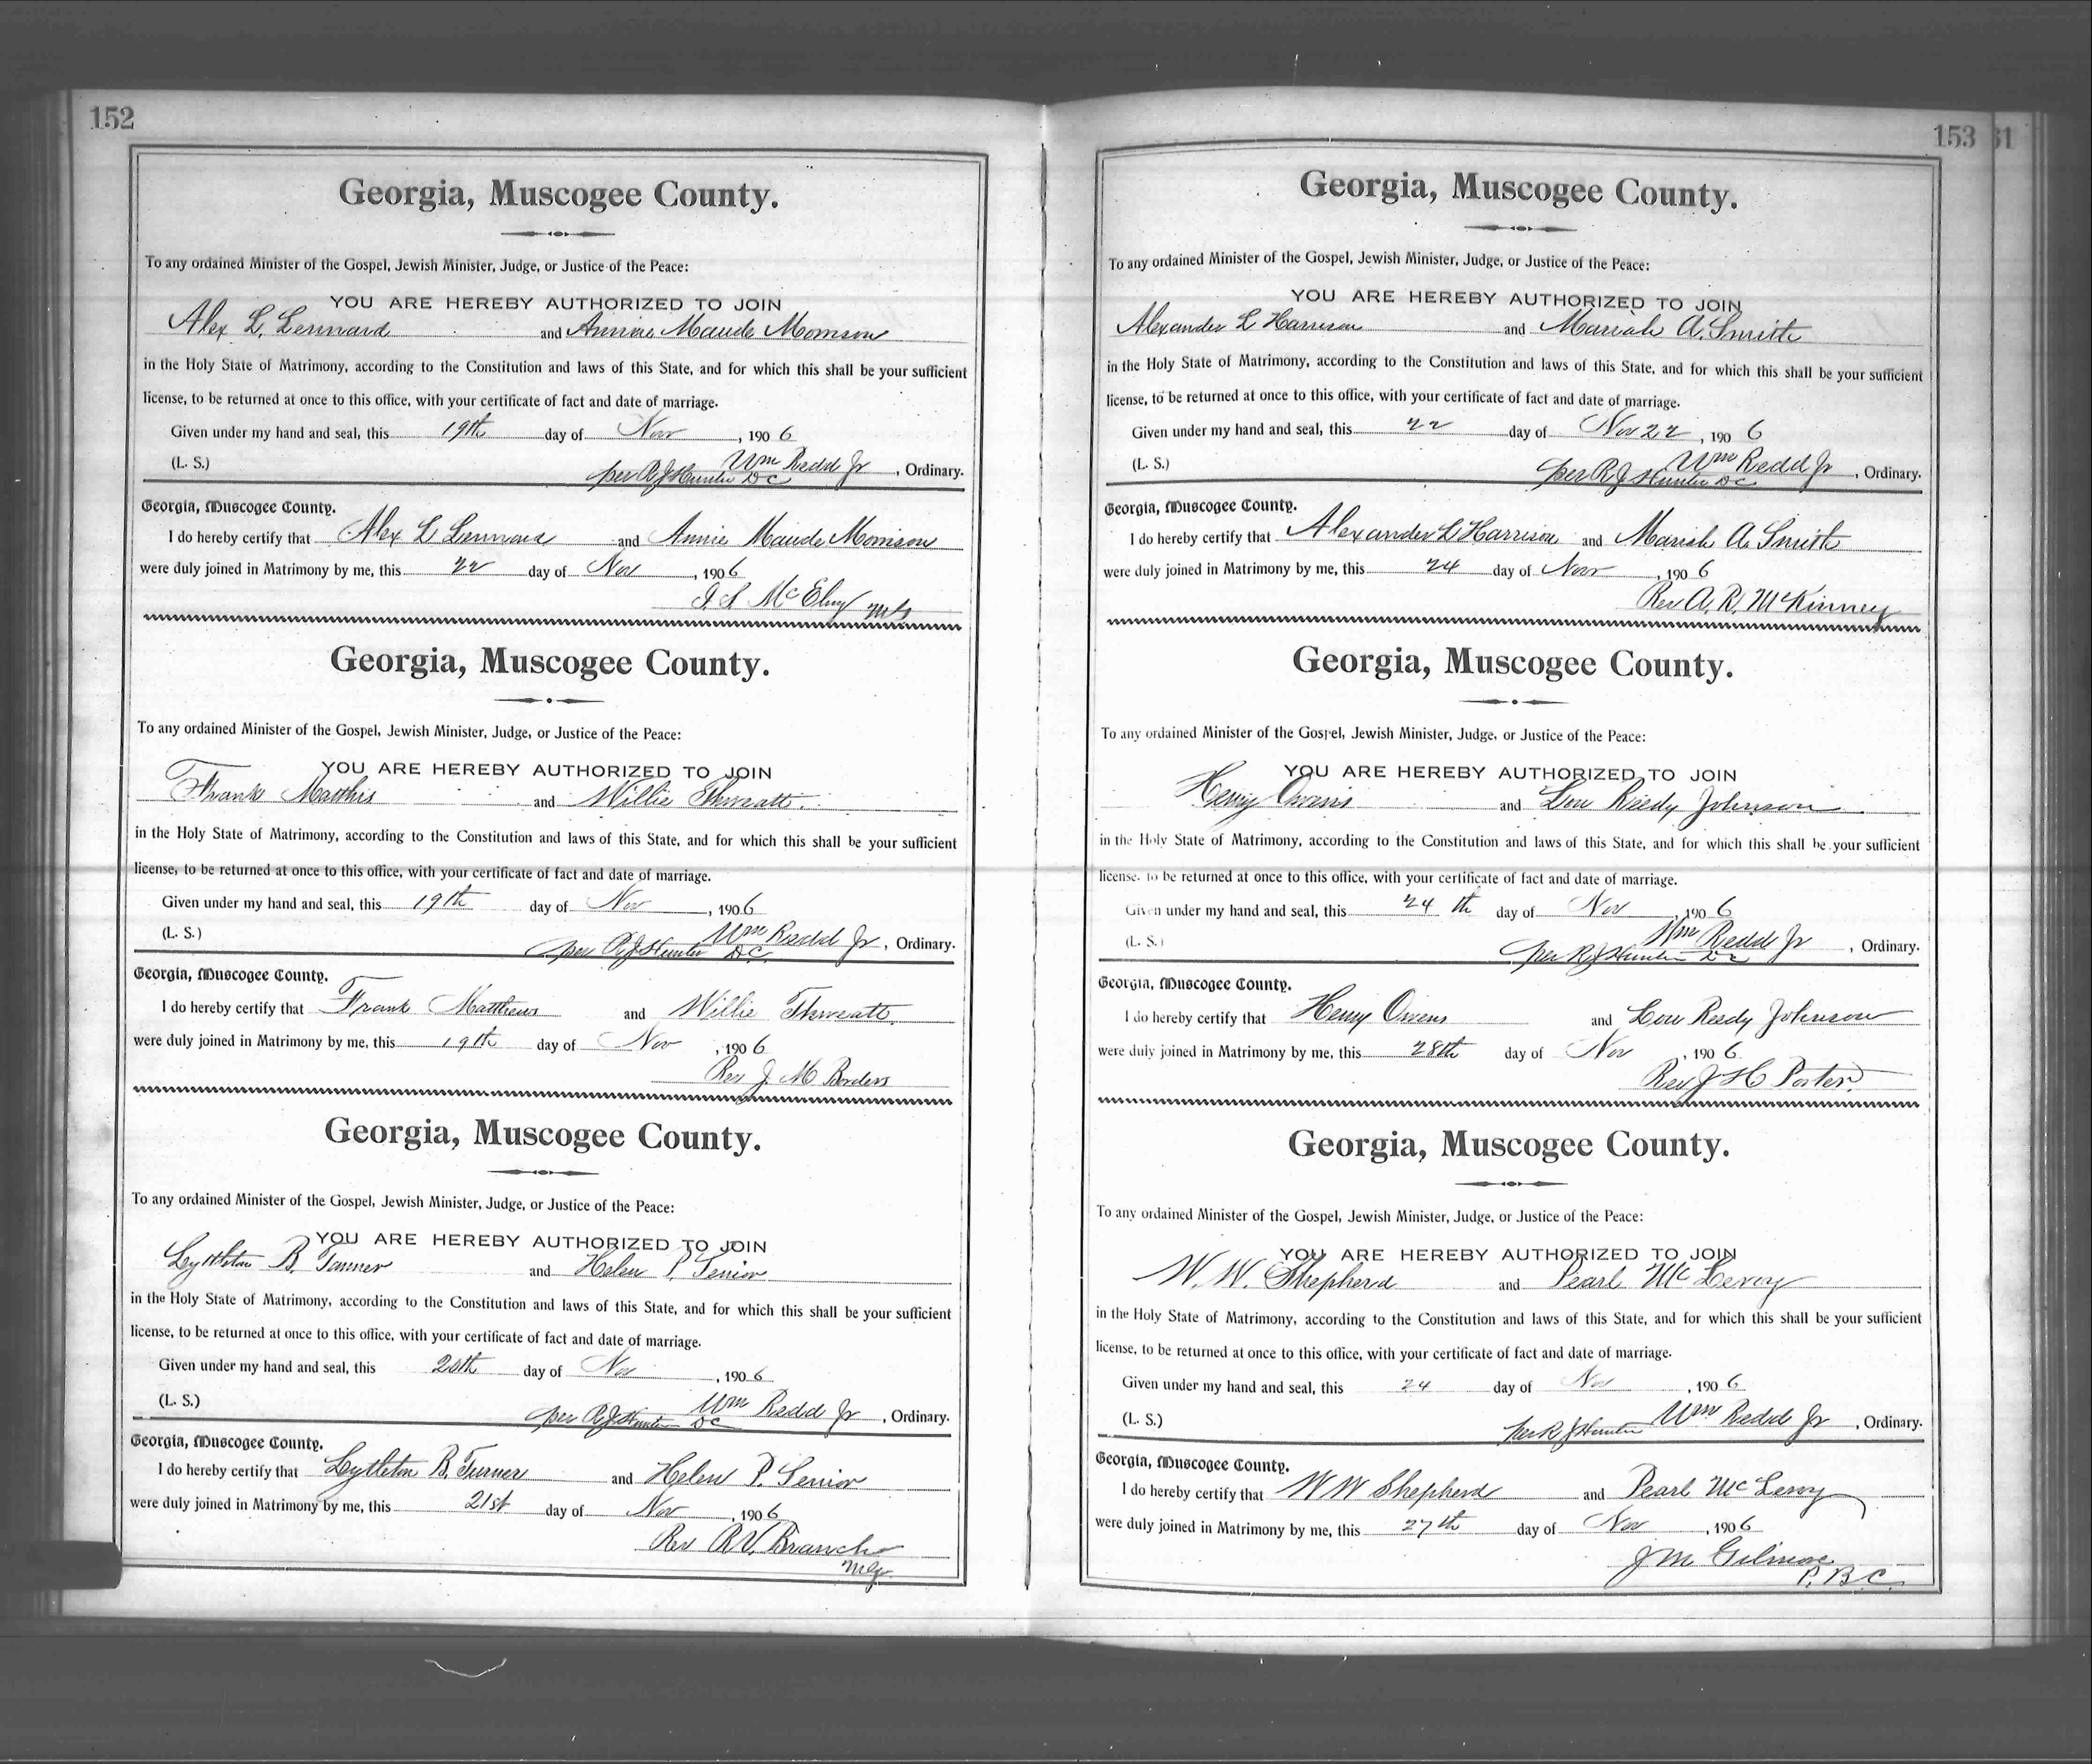 152
Georgia, Muscogee County.
To any ordained Minister of the Gospel, Jewish Minister, Judge, or Justice of the Peace:
YOU ARE HEREBY AUTHORIZED TO JOIN
Alex L. Lennard and Annie Maude Morrison
in the Holy State of Matrimony, according to the Constitution and laws of this State, and for which this shall be your sufficient
license, to be returned at once to this office, with your certificate of fact and date of marriage.
Given under my hand and seal, this 19th day of Nov , 190 6
(L. S.) Wm Redd Jr , Ordinary.
per R J Hunter DC
Georgia, Muscogee County.
I do hereby certify that Alex L Lennard and Annie Maude Morrison
were duly joined in Matrimony by me, this 22 day of Nov , 190 6
McElroy
Georgia, Muscogee County.
To any ordained Minister of the Gospel, Jewish Minister, Judge, or Justice of the Peace:
YOU ARE HEREBY AUTHORIZED TO JOIN
Frank Matthis and Willie Threatt
in the Holy State of Matrimony, according to the Constitution and laws of this State, and for which this shall be your sufficient
license, to be returned at once to this office, with your certificate of fact and date of marriage.
Given under my hand and seal, this 19th day of Nov , 190 6
(L. S.) Wm Redd Jr , Ordinary.
per R J Hunter DC
Georgia, Muscogee County.
I do hereby certify that Frank Matthews and Willie Threatt
were duly joined in Matrimony by me, this 19th day of Nov , 190 6
Rev J. M Borders
Georgia, Muscogee County.
To any ordained Minister of the Gospel, Jewish Minister, Judge, or Justice of the Peace:
YOU ARE HEREBY AUTHORIZED TO JOIN
Lyttleton B. Turner and Helen P. Senior
in the Holy State of Matrimony, according to the Constitution and laws of this State, and for which this shall be your sufficient
license, to be returned at once to this office, with your certificate of fact and date of marriage.
Given under my hand and seal, this 20th day of Nov , 190 6
(L. S.) Wm Redd Jr , Ordinary.
per R J Hunter DC
Georgia, Muscogee County.
I do hereby certify that Lytleton B. Turner and Helen P. Senior
were duly joined in Matrimony by me, this 21st day of Nov , 190 6
Rev R V. Branch
M.G.
153 31
Georgia, Muscogee County.
To any ordained Minister of the Gospel, Jewish Minister, Judge, or Justice of the Peace:
YOU ARE HEREBY AUTHORIZED TO JOIN
Alexander L Harrison and Mariah A. Smith
in the Holy State of Matrimony, according to the Constitution and laws of this State, and for which this shall be your sufficient
license, to be returned at once to this office, with your certificate of fact and date of marriage.
Given under my hand and seal, this 22 day of Nov 22 , 190 6
(L. S.) Wm Redd Jr , Ordinary.
per R J Hunter DC
Georgia, Muscogee County.
I do hereby certify that Alexander L Harrison and Mariah A. Smith
were duly joined in Matrimony by me, this 24 day of Nov , 190 6
Rev A. R. McKinney
Georgia, Muscogee County.
To any ordained Minister of the Gospel, Jewish Minister, Judge, or Justice of the Peace:
YOU ARE HEREBY AUTHORIZED TO JOIN
Henry Owens and Lou Reedy Johnson
in the Holy State of Matrimony, according to the Constitution and laws of this State, and for which this shall be your sufficient
license, to be returned at once to this office, with your certificate of fact and date of marriage.
Given under my hand and seal, this 24 th day of Nov , 190 6
(L. S.) Wm Redd Jr , Ordinary.
per R J Hunter DC
Georgia, Muscogee County.
I do hereby certify that Henry Owens and Lou Reedy Johnson
were duly joined in Matrimony by me, this 28th day of Nov , 190 6
Rev J H Porter
Georgia, Muscogee County.
To any ordained Minister of the Gospel, Jewish Minister, Judge, or Justice of the Peace:
YOU ARE HEREBY AUTHORIZED TO JOIN
W. W. Shepherd and Pearl McLeroy
in the Holy State of Matrimony, according to the Constitution and laws of this State, and for which this shall be your sufficient
license, to be returned at once to this office, with your certificate of fact and date of marriage.
Given under my hand and seal, this 24 day of Nov , 190 6
(L. S.) Wm Redd Jr , Ordinary.
per R J Hunter
Georgia, Muscogee County.
I do hereby certify that W W Shepherd and Pearl McLeroy
were duly joined in Matrimony by me, this 27th day of Nov , 190 6
J M Gilmore
P. B. C.